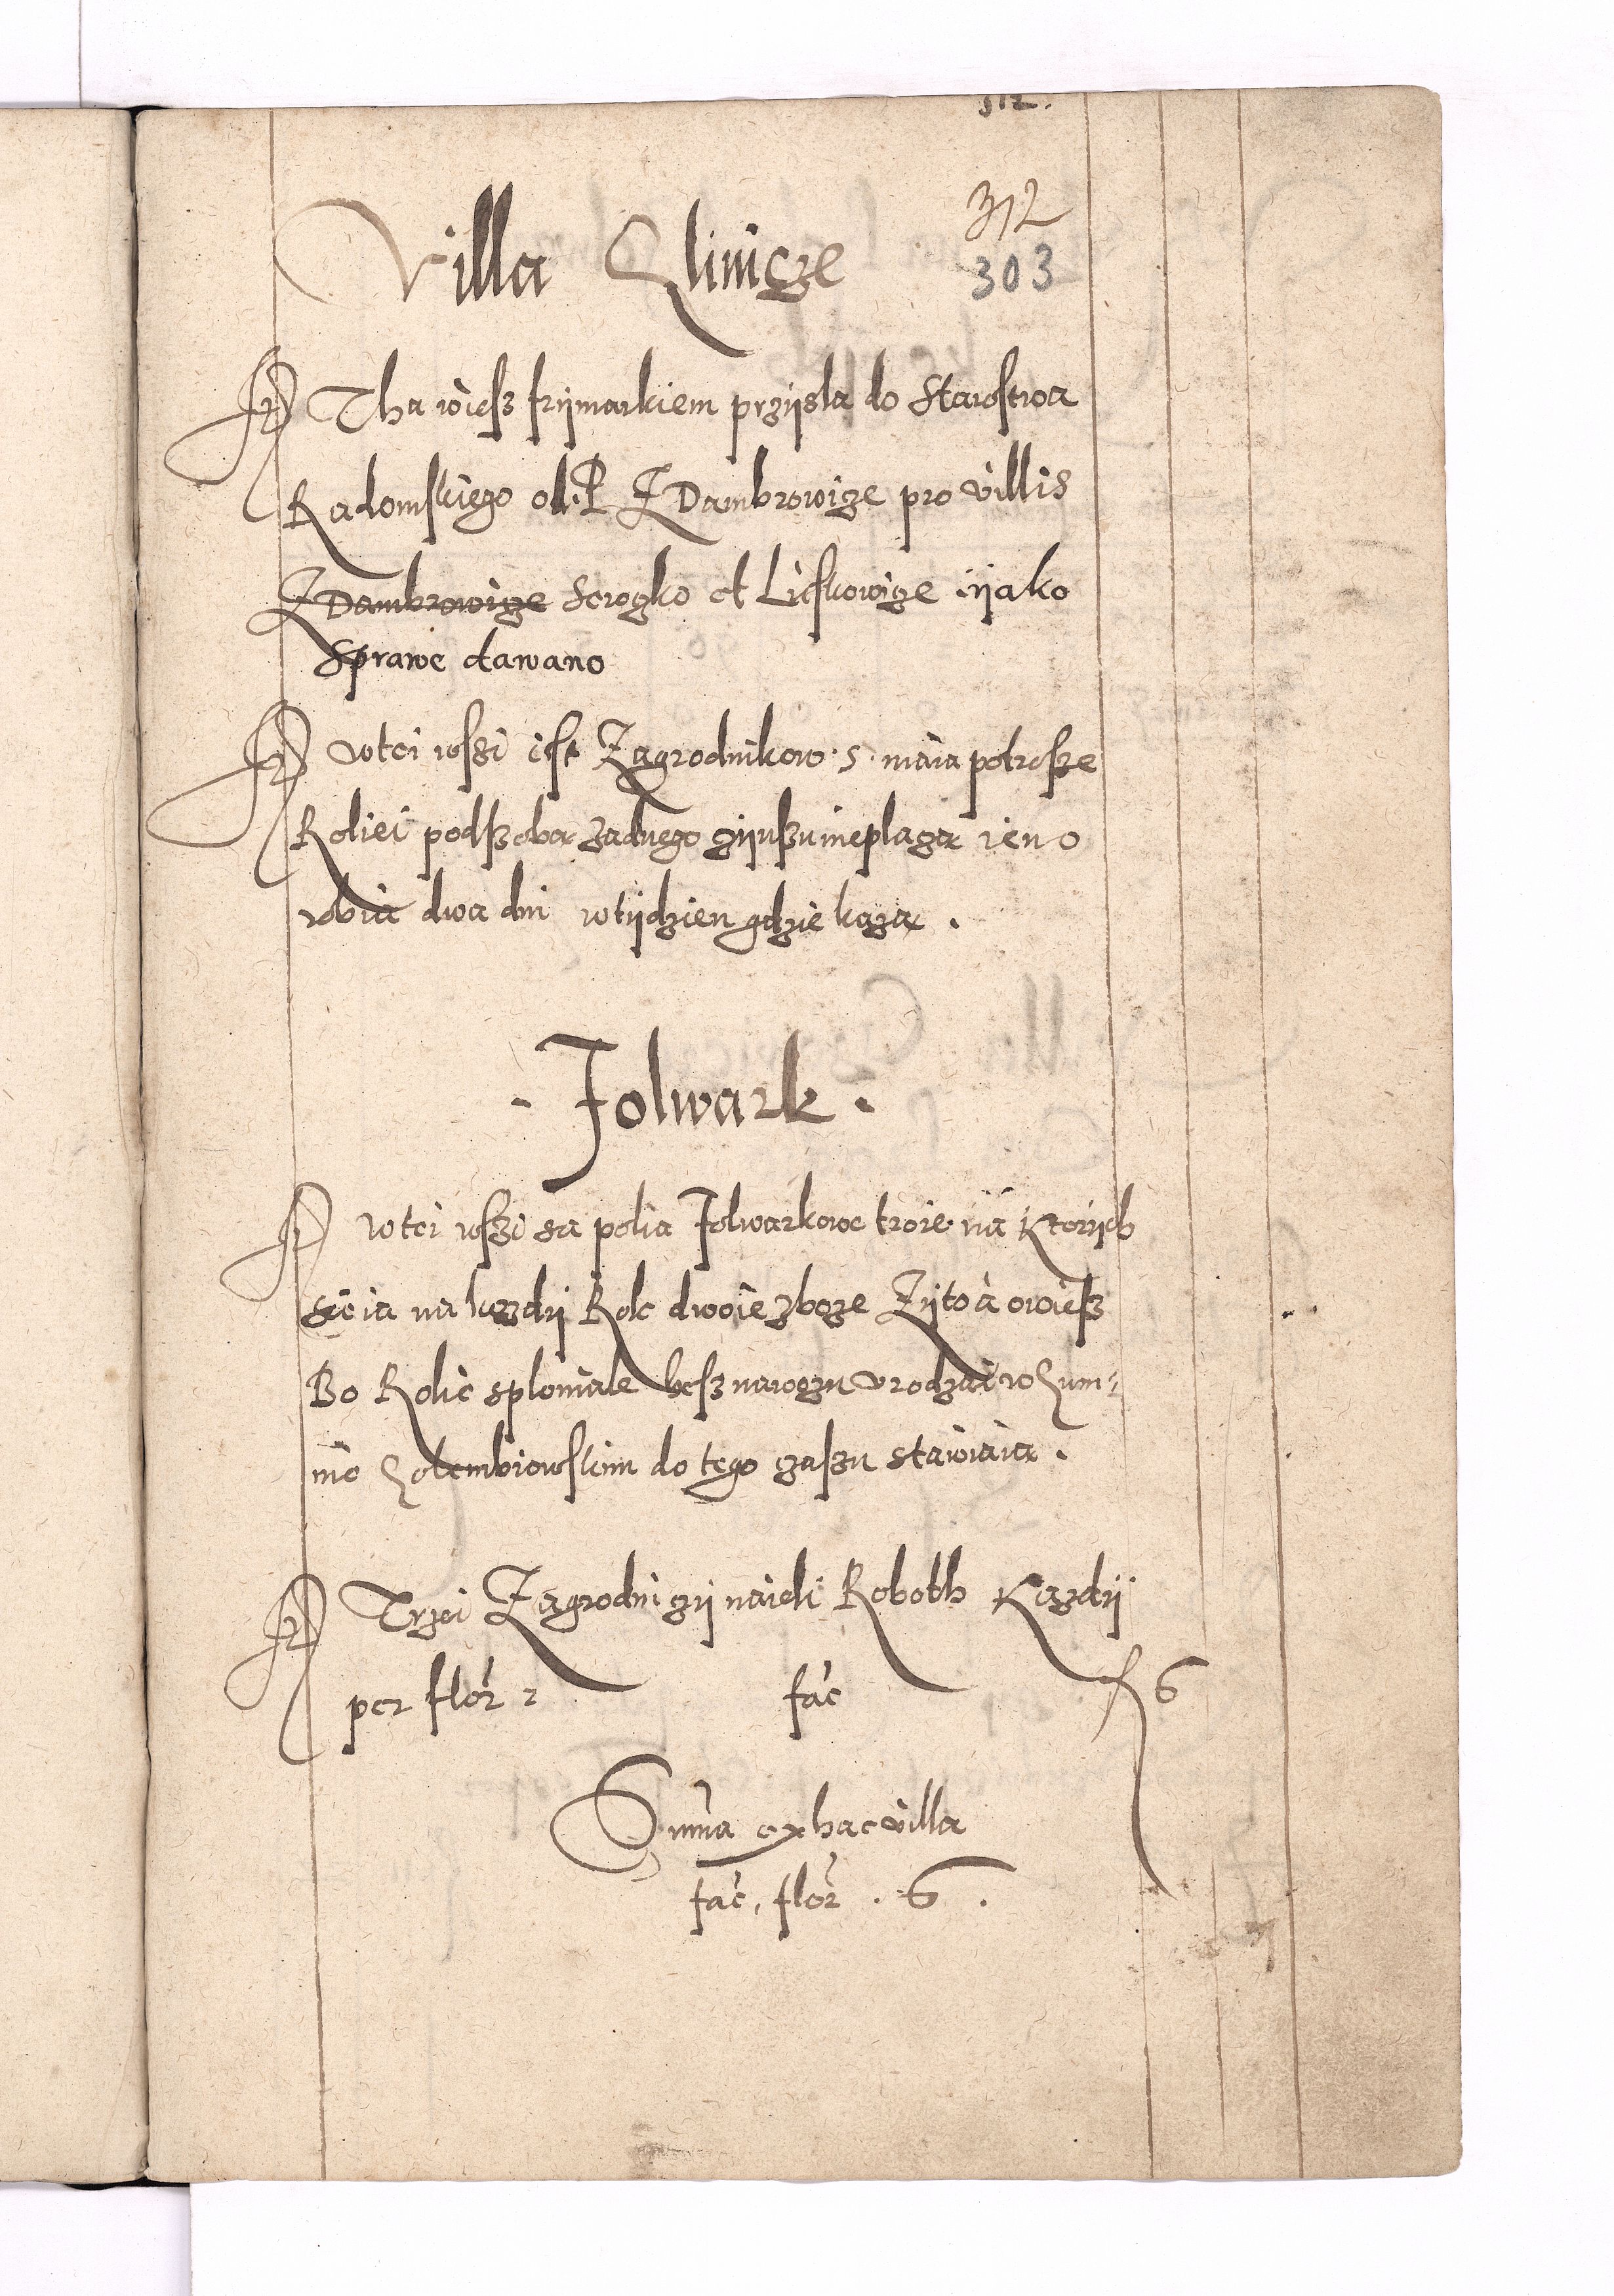 312.
312
Villa Glinicze 303
It Tha wiesz frijmarkiem przijsla do Starostwa
Radomskiego od P Z Dambrowicze pro villis
Z Dambrowicze et Lieskowicze ijako
sprawe dawano
It wtei wszi iest Zagrodnikow 5 maia potrosze
Roliei pod szoba zadnego czijnszu nieplaczą ieno
robia dwa dni wtijdzien gdzie kazą .
· Folwark ·
It wtei wszi sa polia Folwarkowe troie na ktorijch
sieia na kazdij Role dwoie zboze Zijto à owiesz
Bo Rolie splonialе besz nawozu urodzai w Gum¬
nie Golembiowskim do tego czaszu stawiaią .
It Trzei Zagrodniczij naieli Roboth Kazdij
per flor 2 fac fl 6
Summa ex hac villa
fac, flor . 6 .